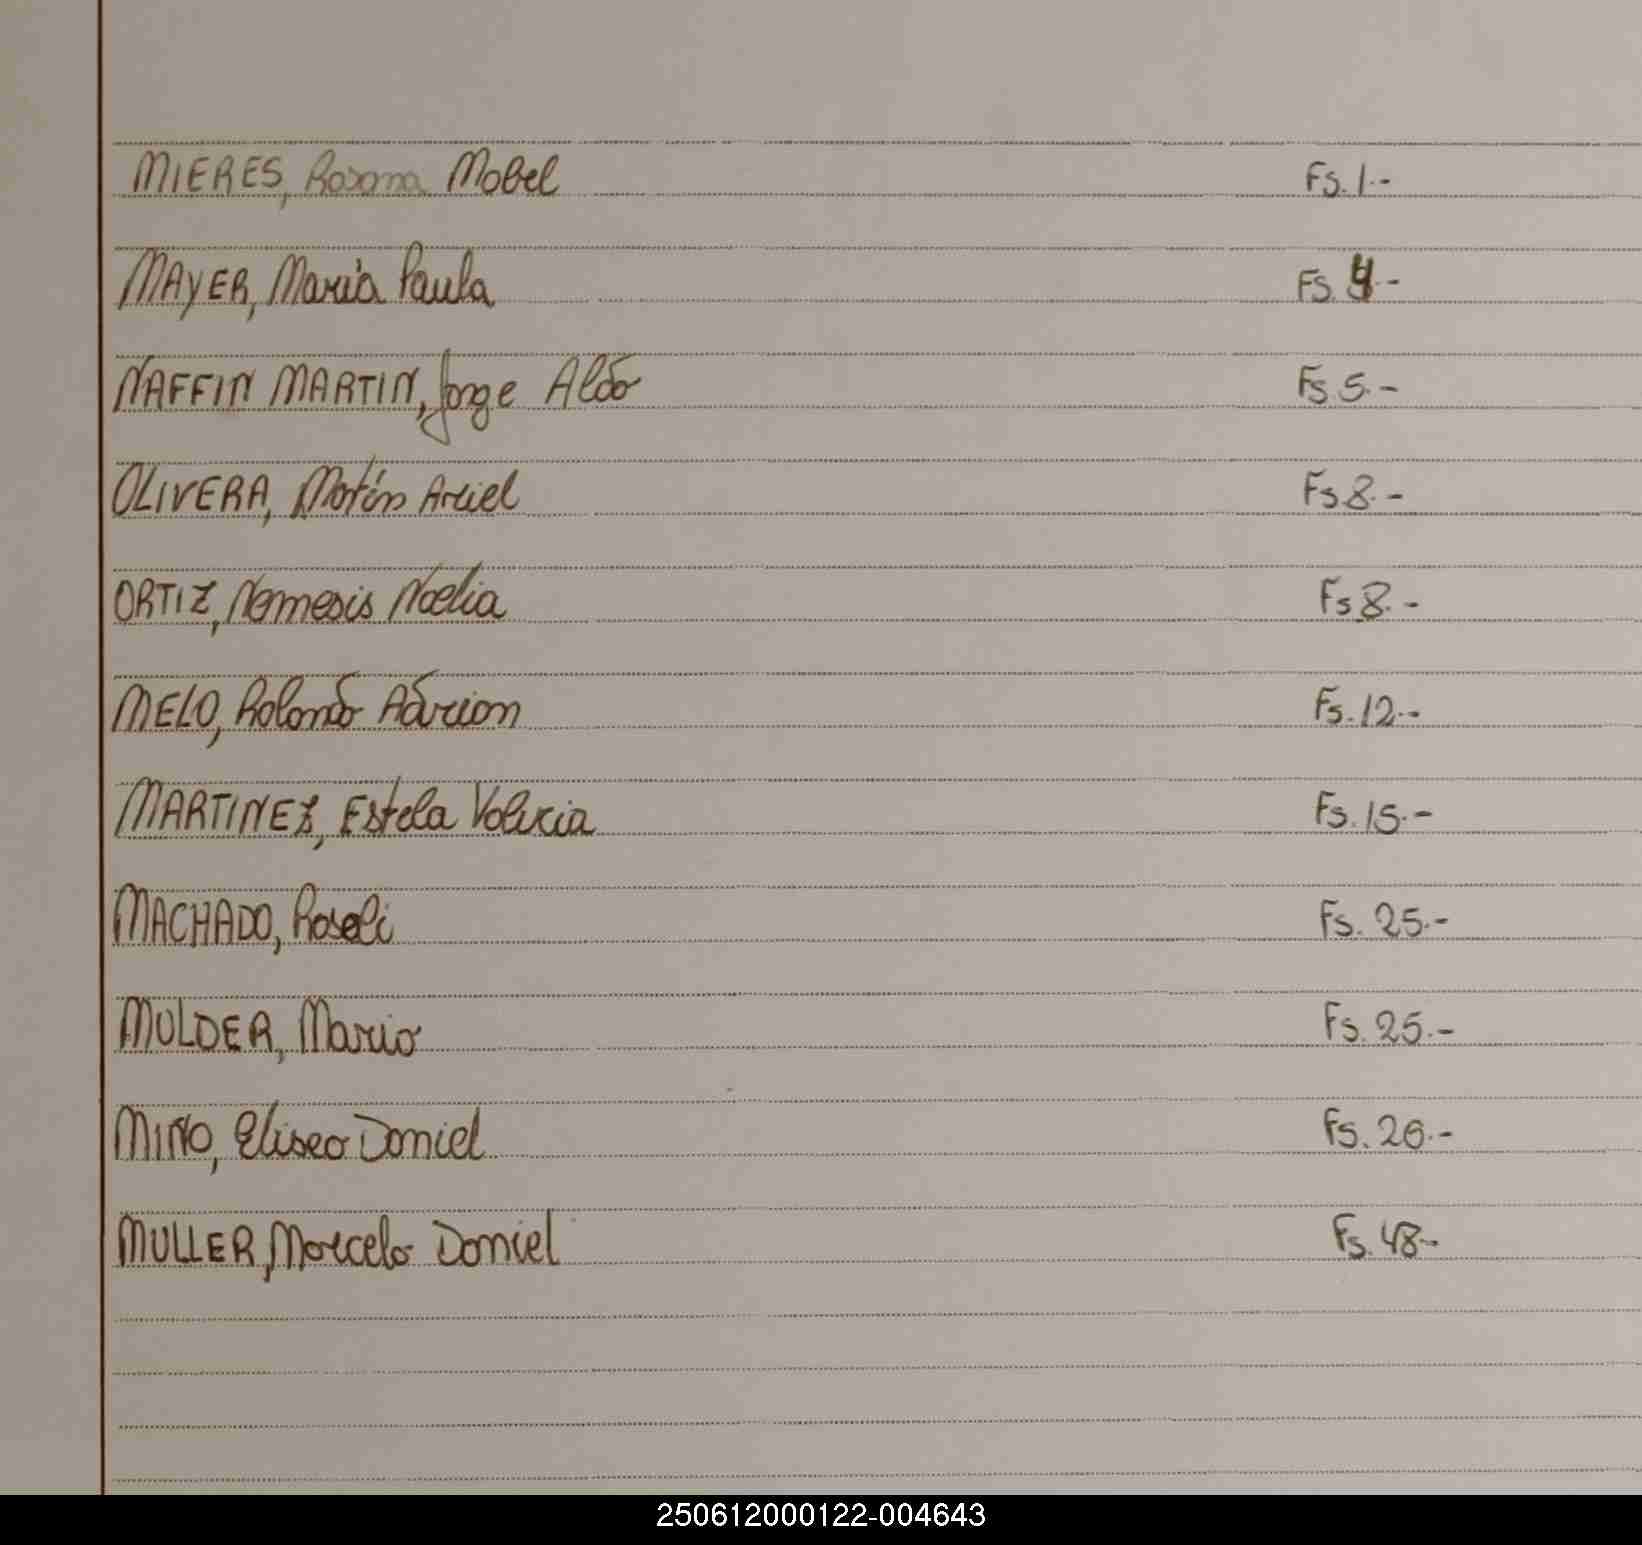 MIERES, Rosana Mabel Fs. 1.-
MAYER, María Paula Fs. 4.-
NAFFIN MARTIN, Jorge Aldo Fs. 5.-
OLIVERA, Matín Ariel Fs 8.-
ORTIZ, Nemesis Noelia Fs 8.-
MELO, Rolando Adrian Fs. 12.-
MARTINEZ, Estela Valeria Fs. 15.-
MACHADO, Roseli Fs. 25.-
MULDER, Mario Fs. 25.-
MIÑO, Eliseo Daniel Fs. 26.-
MULLER, Marcelo Daniel Fs. 48.-
250612000122-004643